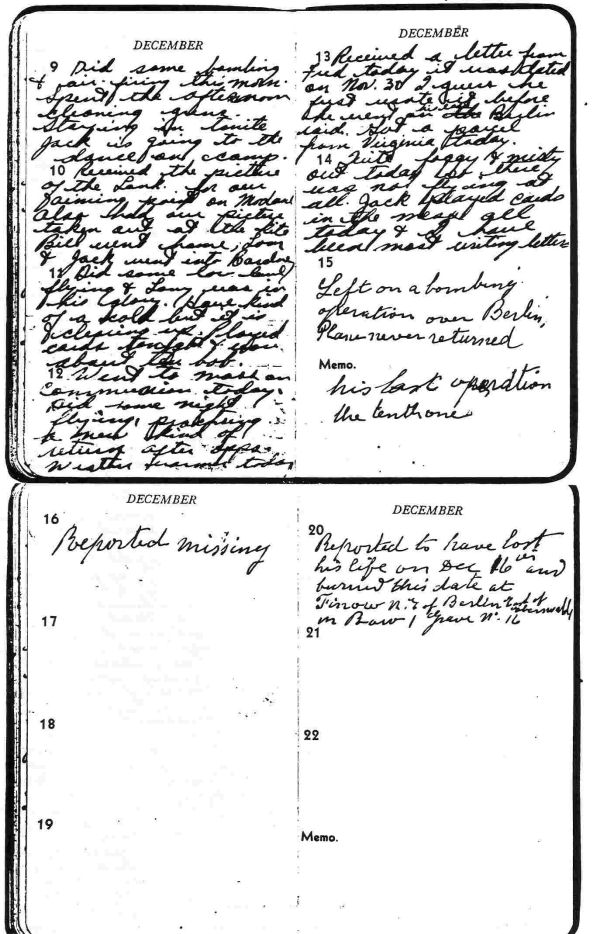 DECEMBER
9 Did some bombing
& air firing this morn.
Spent the afternoon
cleaning guns
Staying in tonite
Jack is going to the
dance our camp.
10 Received the picture
of the Lanc. for our
aiming point on Modane
Also had our picture
taken out at the kite
Bill went home, Lou
& Jack went into
11 Did some low level
flying & Lony was in
his glory. Have kind
of a cold but it is
clearing up. Played
cards tonight & won
about two bob.
12 Went to mass an
Communion today.
Did some night
flying, practising
a new kind of
return after opps.
Weather warmer today
DECEMBER
13 Received a letter from
Fred today it was dated
on Nov. 30 I guess he
just wrote it before
he went on the Berlin
raid. Got a parcel
from Virginia today.
14 Quite foggy & misty
out today so there
was no flying at
all. Jack played cards
in the mess all
today & I have
been most writing letters
15
Left on a bombing
operation over Berlin,
Plane never returned
Memo.
his last operation
the tenth one
DECEMBER
16
Reported missing
17
18
19
DECEMBER
20
Reported to have lost
his life on Dec 16 and
burried this date at
Finow N.E of Berlin East of
in Row 1 grave No. 16
21
22
Memo.